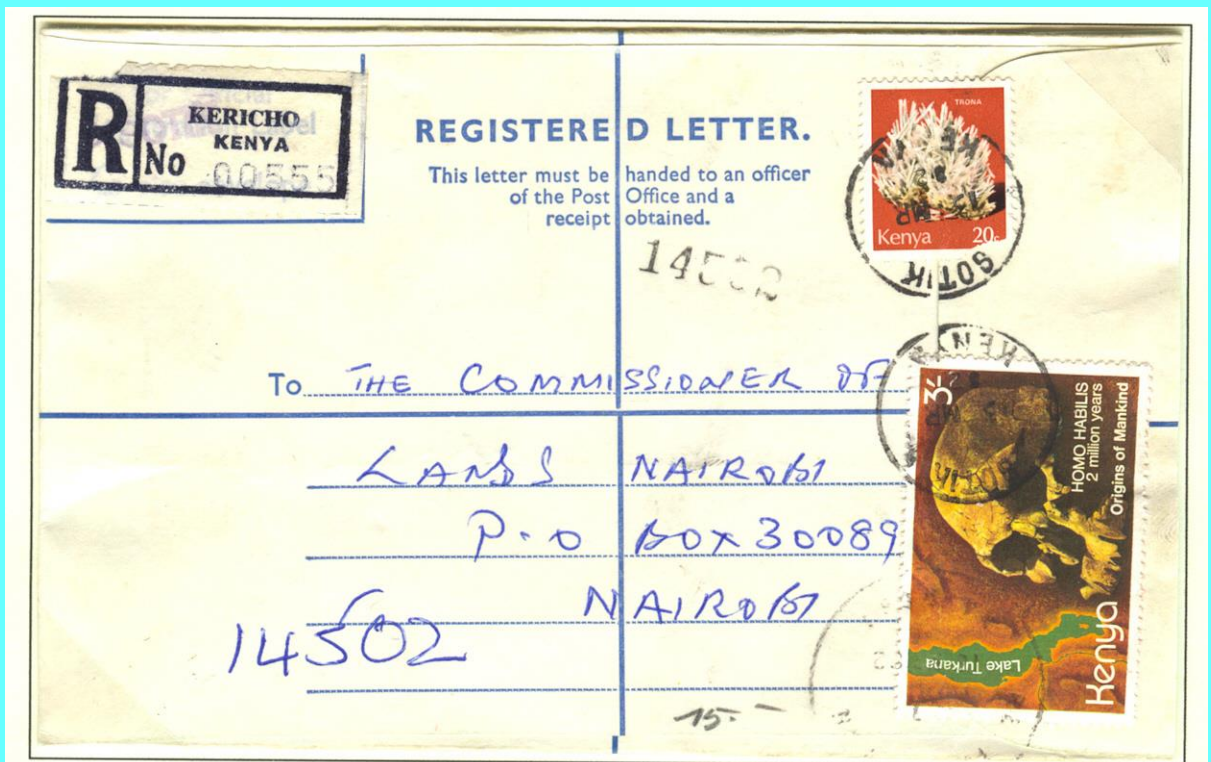 R
KERICHO
KENYA
No 00555
REGISTERED LETTER.
This letter must be handed to an officer
of the Post Office and a
receipt obtained.
14502
TRONA
Kenya 20c
SOTIK
To THE COMMISSIONER OF
LANDS NAIROBI
P.O BOX 30089
NAIROBI
14502
15.-
KENYA
3/-
HOMO HABILIS
2 million years
Origins of Mankind
Lake Turkana
Kenya